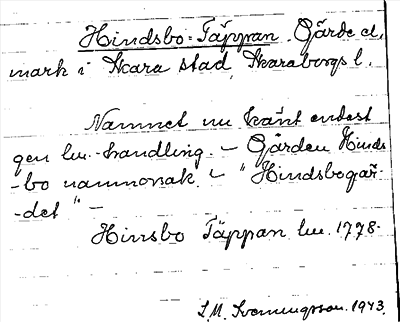 Hindsbo-Täppan. Gärde el.
mark i Skara stad, Skaraborgs l.
Namnet nu känt endast
gen lm.-handling. – Gärden Hinds-
-bo namnorsak. – "Hindsbogär-
-det" –
Hinsbo Täppan lm. 1778.
L.M. Svenningsson. 1943.